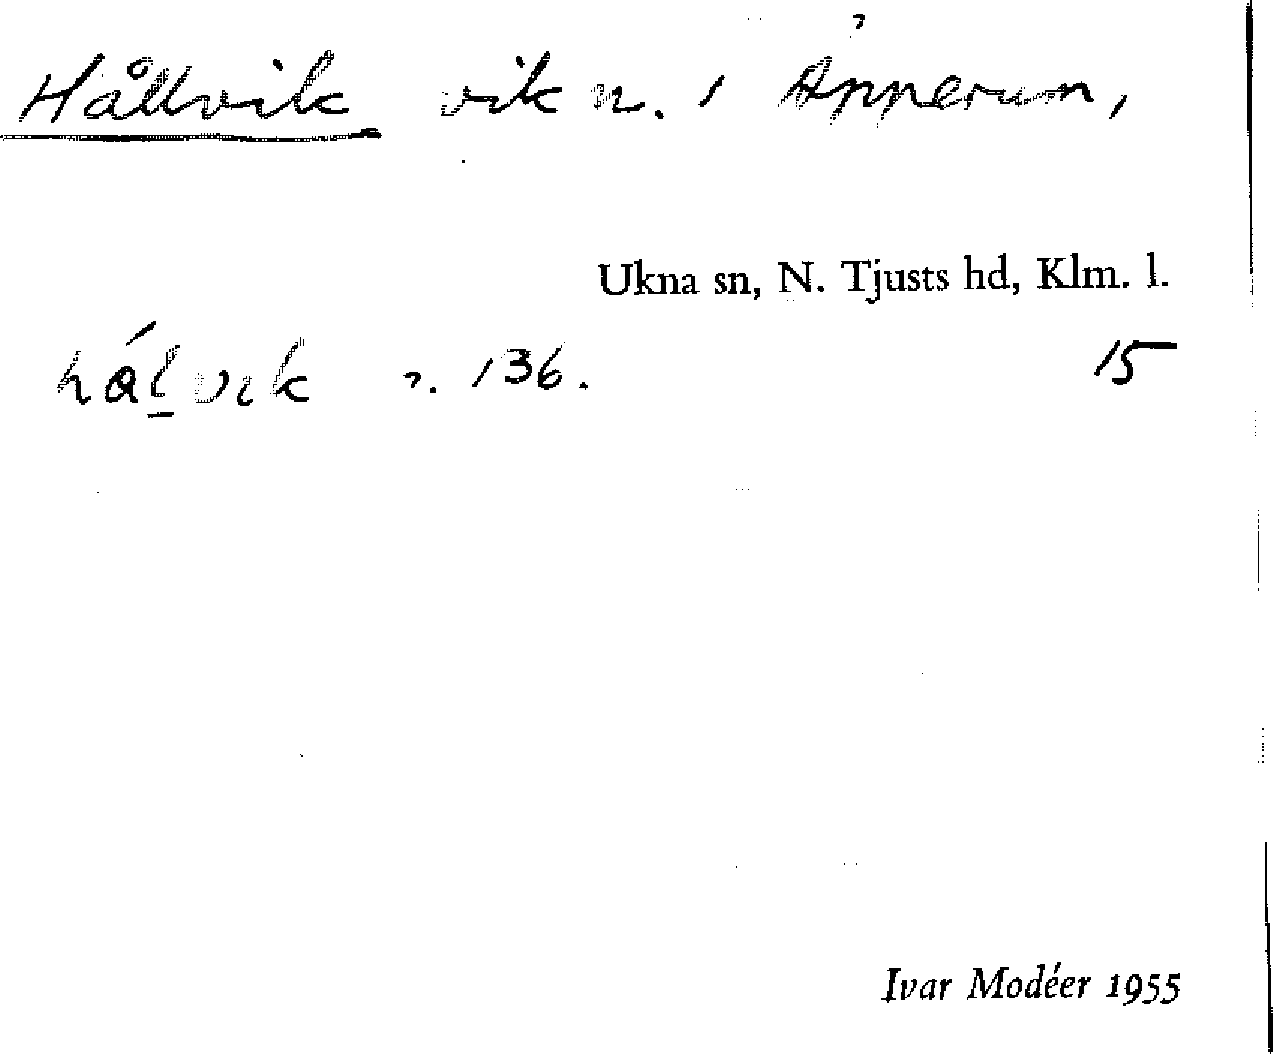 Hållvik vik n. i Ånnerum,
Ukna sn, N. Tjusts hd, Klm. l.
hálvik n. 136. 15
Ivar Modéer 1955